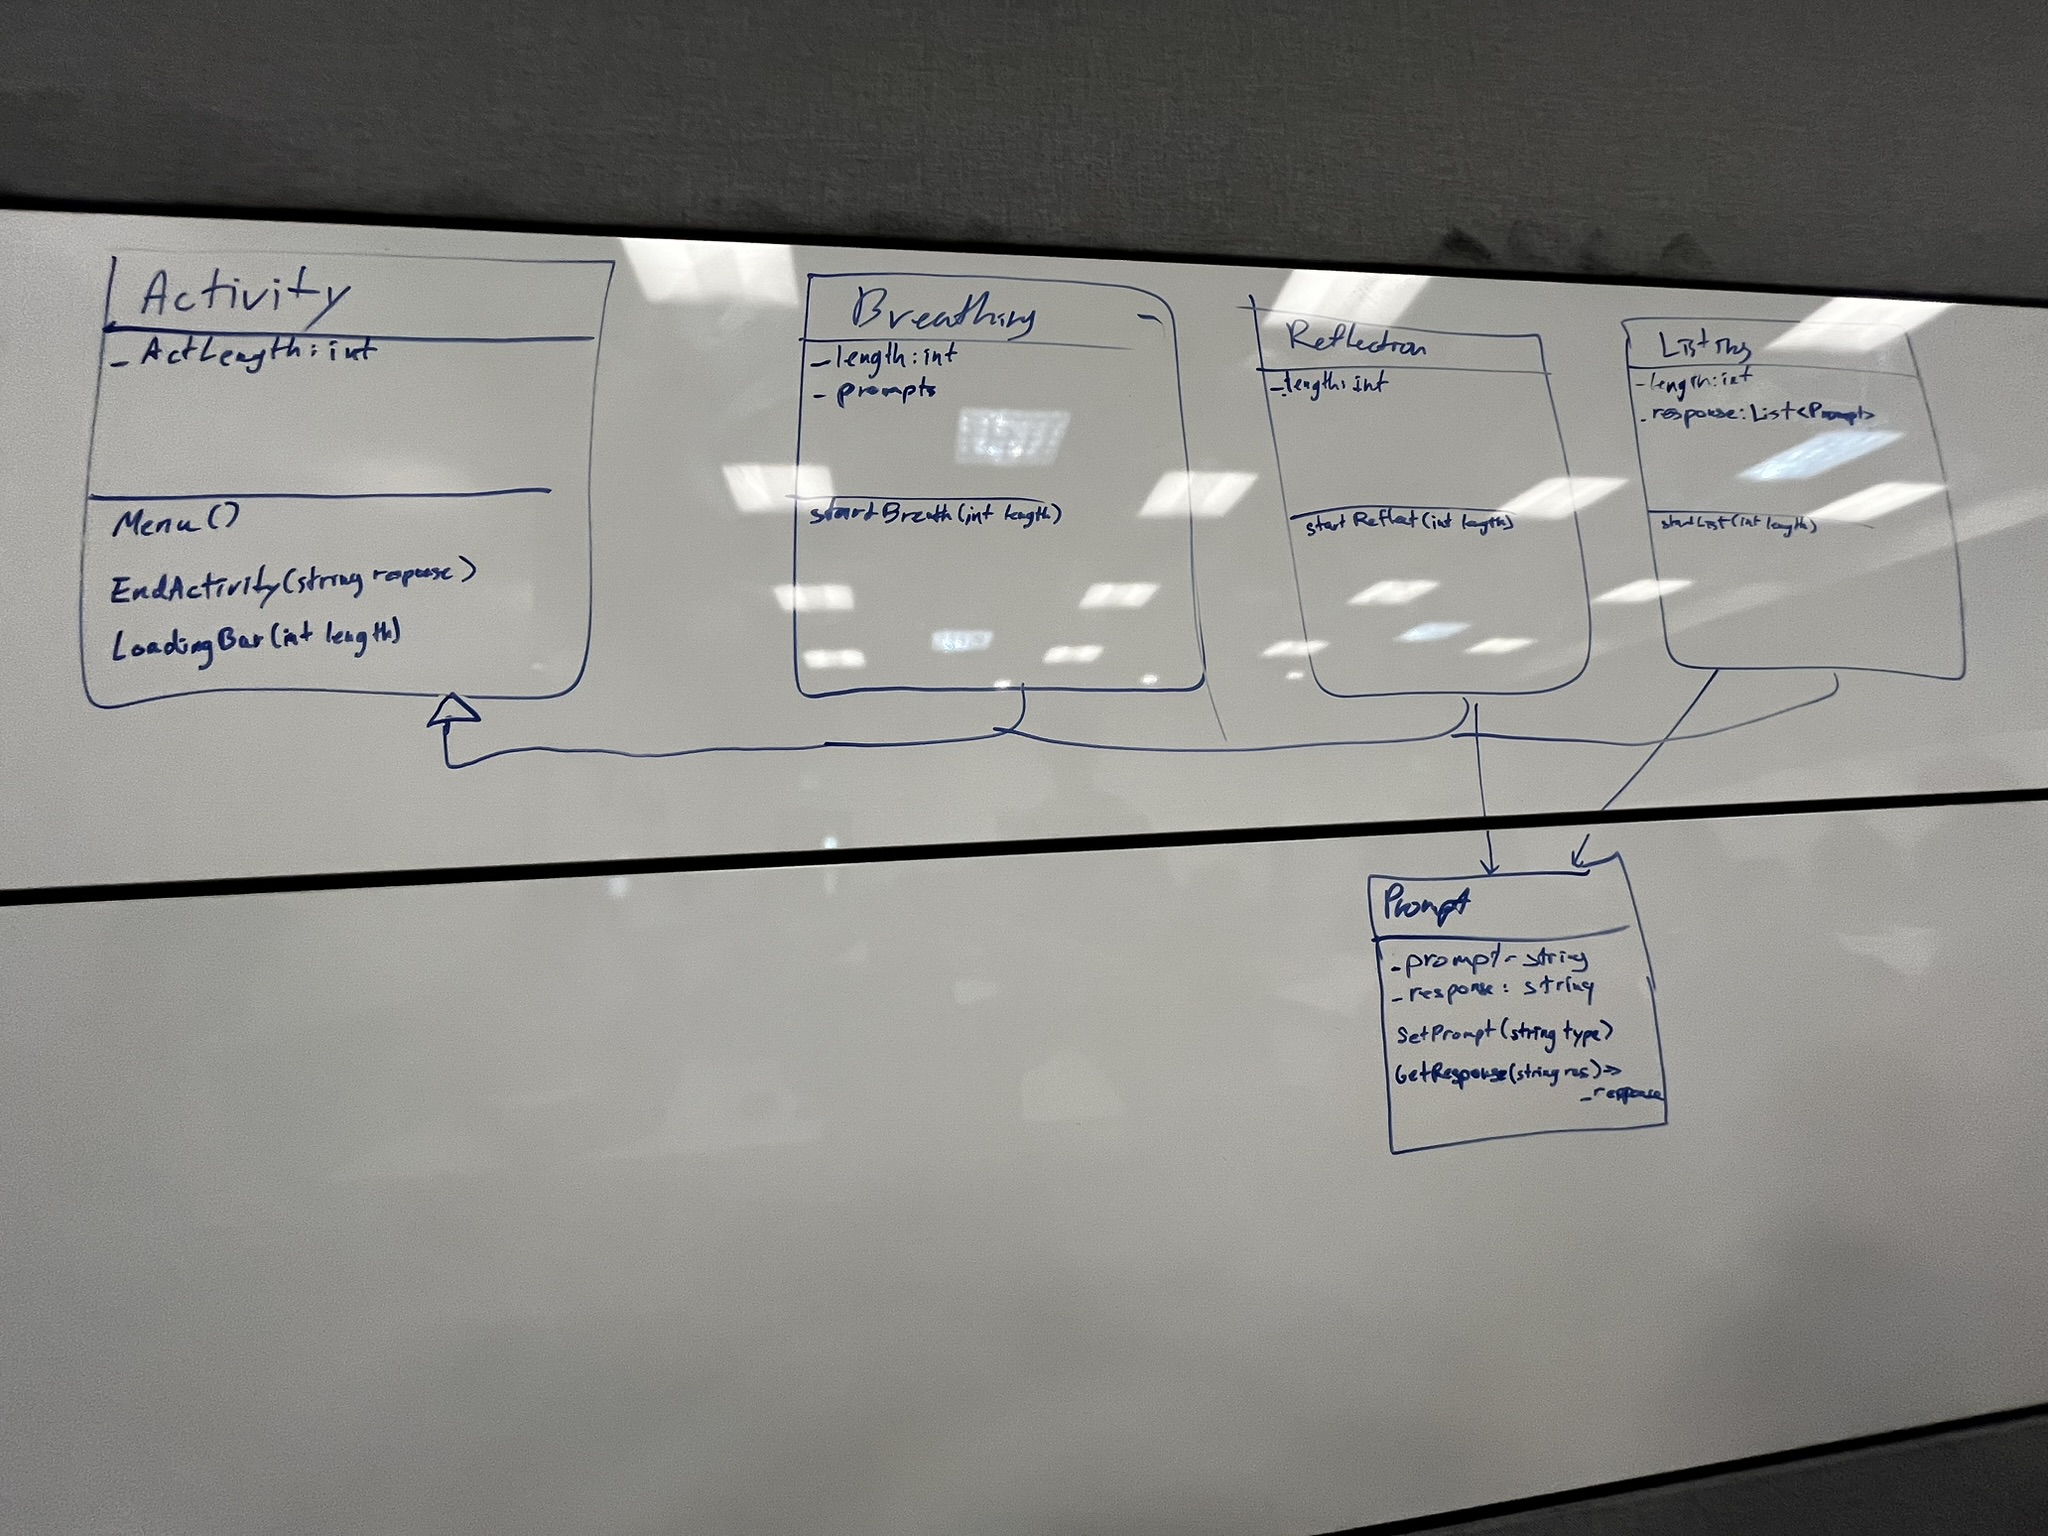 Activity
_ActLength: int
Menu()
EndActivity(string repouse)
LoadingBar(int length)
Breathing
_length: int
_prompts
startBreath(int length)
Reflection
_length: int
startReflect(int length)
Listing
_length: int
_response: List<Prompt>
startList(int length)
Prompt
_prompt - string
_response: string
SetPrompt(string type)
GetResponse(string res) =>
_response